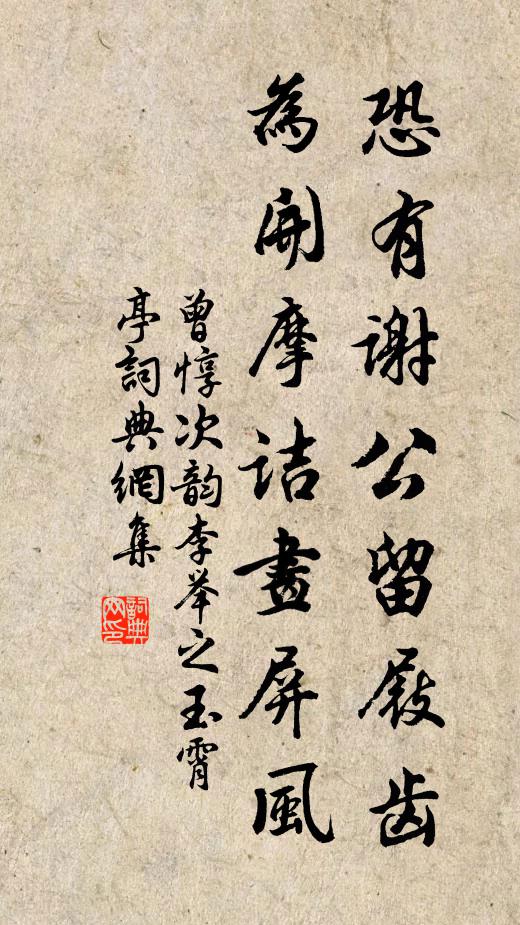 恐有谢公留屐齿
为开摩诘画屏風
曾惇次韵李举之玉霄
亭詞典網集
詞典
网印